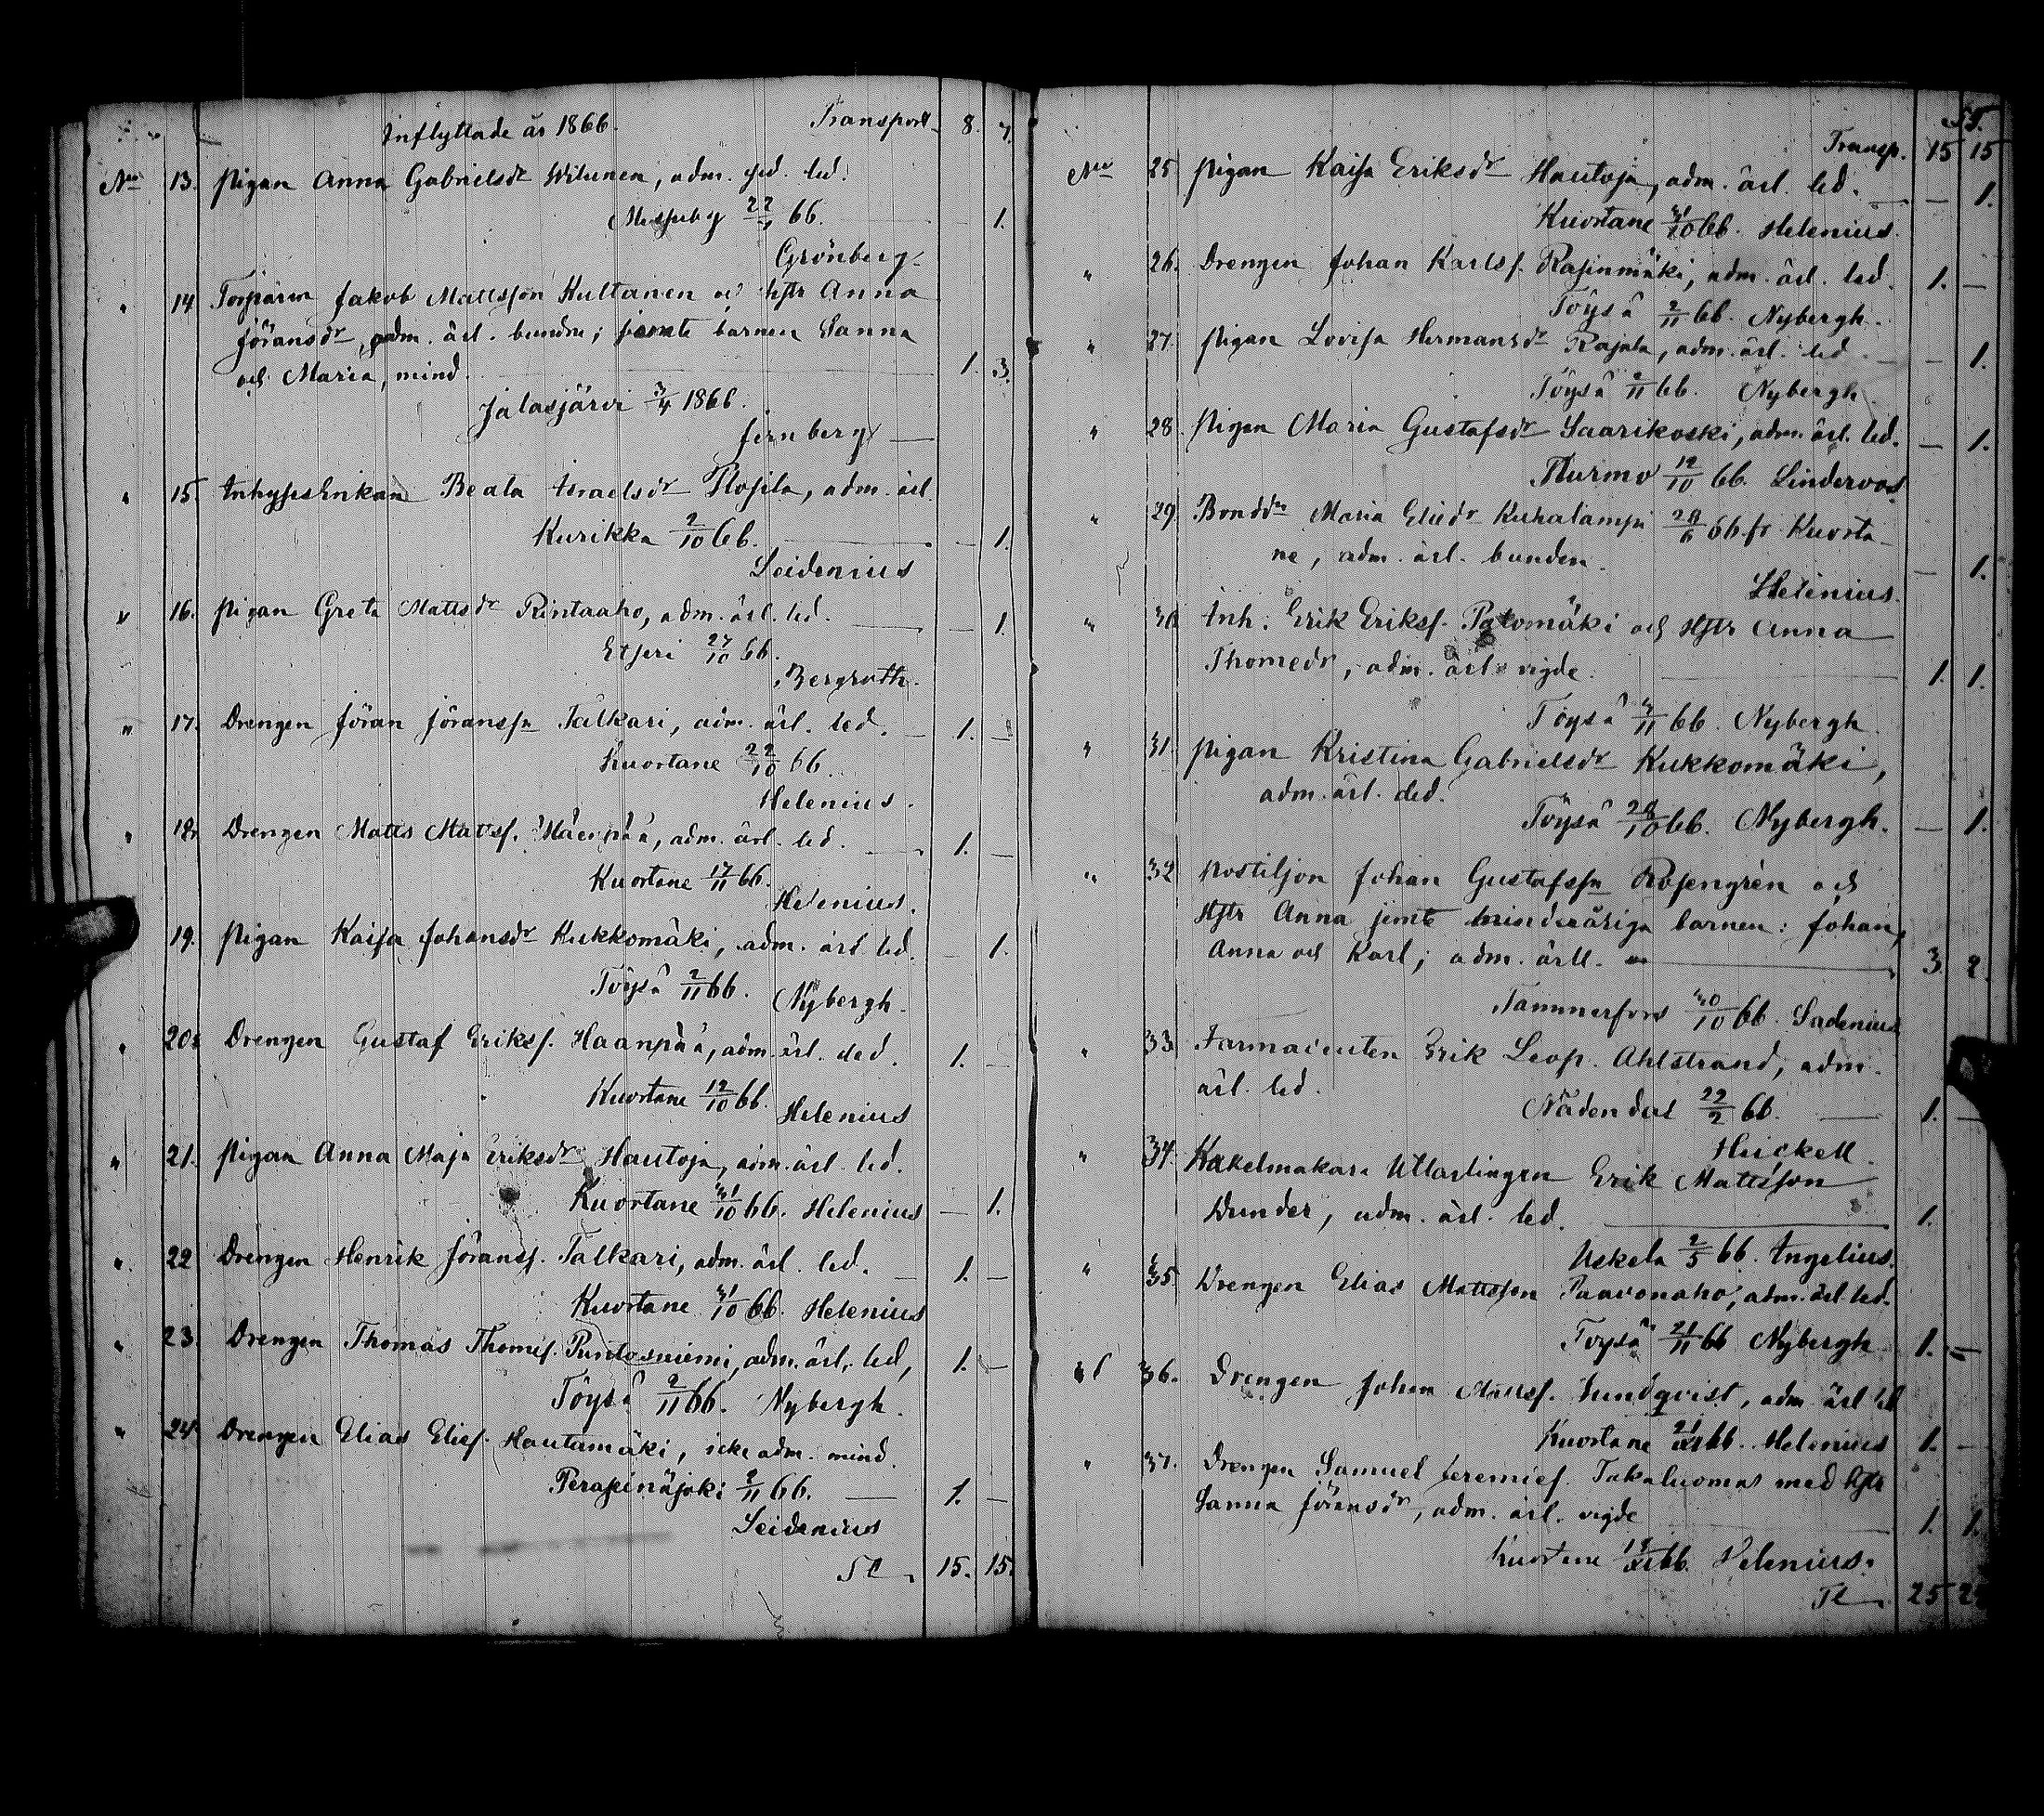 Inflyttade år 1866. Transport 8. 7.
No 13. Pigan Anna Gabrielsdr Wilunen, adm. led.
22/ 66. 1.
Grönberg
" 14 Torparen Jakob Mattsson Kultanen och hstr Anna
Göransdr, adm. ärl. bundne; jemte barnen Sanna
och Maria, mind. 1. 3.
Jalasjärvi 3/4 1866.
Fernberg
" 15. Inhyses Enkan Beata Israelsdr Plosila, adm. ärl.
Kurikka 2/10 66. — 1.
Leidenius
" 16. Pigan Greta Mattsdr Rintaaho, adm. ärl. led.
— 1.
Etseri 27/10 66.
Bergroth.
" 17. Drengen Jöran Jöranssn Talkari, adm. ärl. led. 1. —
Kuortane 22/10 66.
Helenius.
" 18. Drengen Matts Mattss. Mäenpää, adm. ärl. led. 1. —
Kuortane 17/11 66.
Helenius.
19. Pigan Kaisa Johansdr Kukkomäki, adm. ärl. led. — 1.
Töysä 2/11 66. Nybergh.
" 20. Drengen Gustaf Erikss. Haanpää, adm. ärl. led. 1. —
Kuortane 12/10 66.
Helenius
" 21. Pigan Anna Maja Eriksdr Hautoja, adm. ärl. led.
Kuortane 31/10 66. Helenius — 1.
" 22 Drengen Henrik Jöranss. Talkari, adm. ärl. led. 1. —
Kuortane 31/10 66. Helenius
" 23. Drengen Thomas Thomes. Puntosniemi, adm. ärl. led, 1. —
Töysä 2/11 66. Nybergh.
" 24 Drengen Elias Elies. Hautamäki, icke adm. mind.
Peräseinäjoki 2/11 66. 1. —
Leidenius
15. 15.
55.
Transp. 15 15
No 25 Pigan Kaisa Eriksdr Hautoja, adm. ärl. led. — 1.
Kuortane 31/10 66. Helenius.
" 26. Drengen Johan Karlss. Rasinmäki, adm. ärl. led. 1. —
Töysä 2/11 66. Nybergh.
" 27. Pigan Lovisa Hermansdr Rajala, adm. ärl. led — 1.
Töysä 2/11 66. Nybergh.
" 28. Pigan Maria Gustafsdr Saarikoski, adm. ärl. led. — 1.
12/10 66. Linderoos
" 29 Maria Eliedr Kuhalampi 66 fr Kuorta-
ne, adm. ärl. bunden. — 1.
Helenius.
" 30 Inh. Erik Erikss. Palomäki och Hstr Anna
Thomedr, adm. ärl. vigde. 1. 1.
Töysä 3/11 66. Nybergh
" 31. Pigan Kristina Gabrielsdr Kukkomäki,
adm. ärl. led.
Töysä 28/10 66. Nybergh. — 1.
" 32 Postiljon Johan Gustafssn Rosengrén och
Hstr Anna jemte minderåriga barnen: Johan,
Anna och Karl; adm. ärll. 3. 2.
Tammerfors 30/10 66. Sadenius
" 33 Farmaceuten Erik Leop. Ahlstrand, adm.
ärl. led.
Nådendal 22/2 66. 1. —
Heickell
" 34. Kakelmakare Utlärlingen Erik Mattsson
Dunder, adm. ärl. led. 1.
Uskela 2/5 66. Ingelius.
" 35 Drengen Elias Mattsson Paavonaho, adm. ärl. led.
Töysä 21/11 66 Nybergh 1. —
36. Drengen Johan Mattss. Lundqvist, adm. ärl led
Kuortane 66. Helenius 1. —
" 37. Drengen Samuel Jeremies. Takaluoma med hstr
Sanna Jöransdr, adm. ärl. vigde 1. 1.
Kuortane 66. Helenius.
25